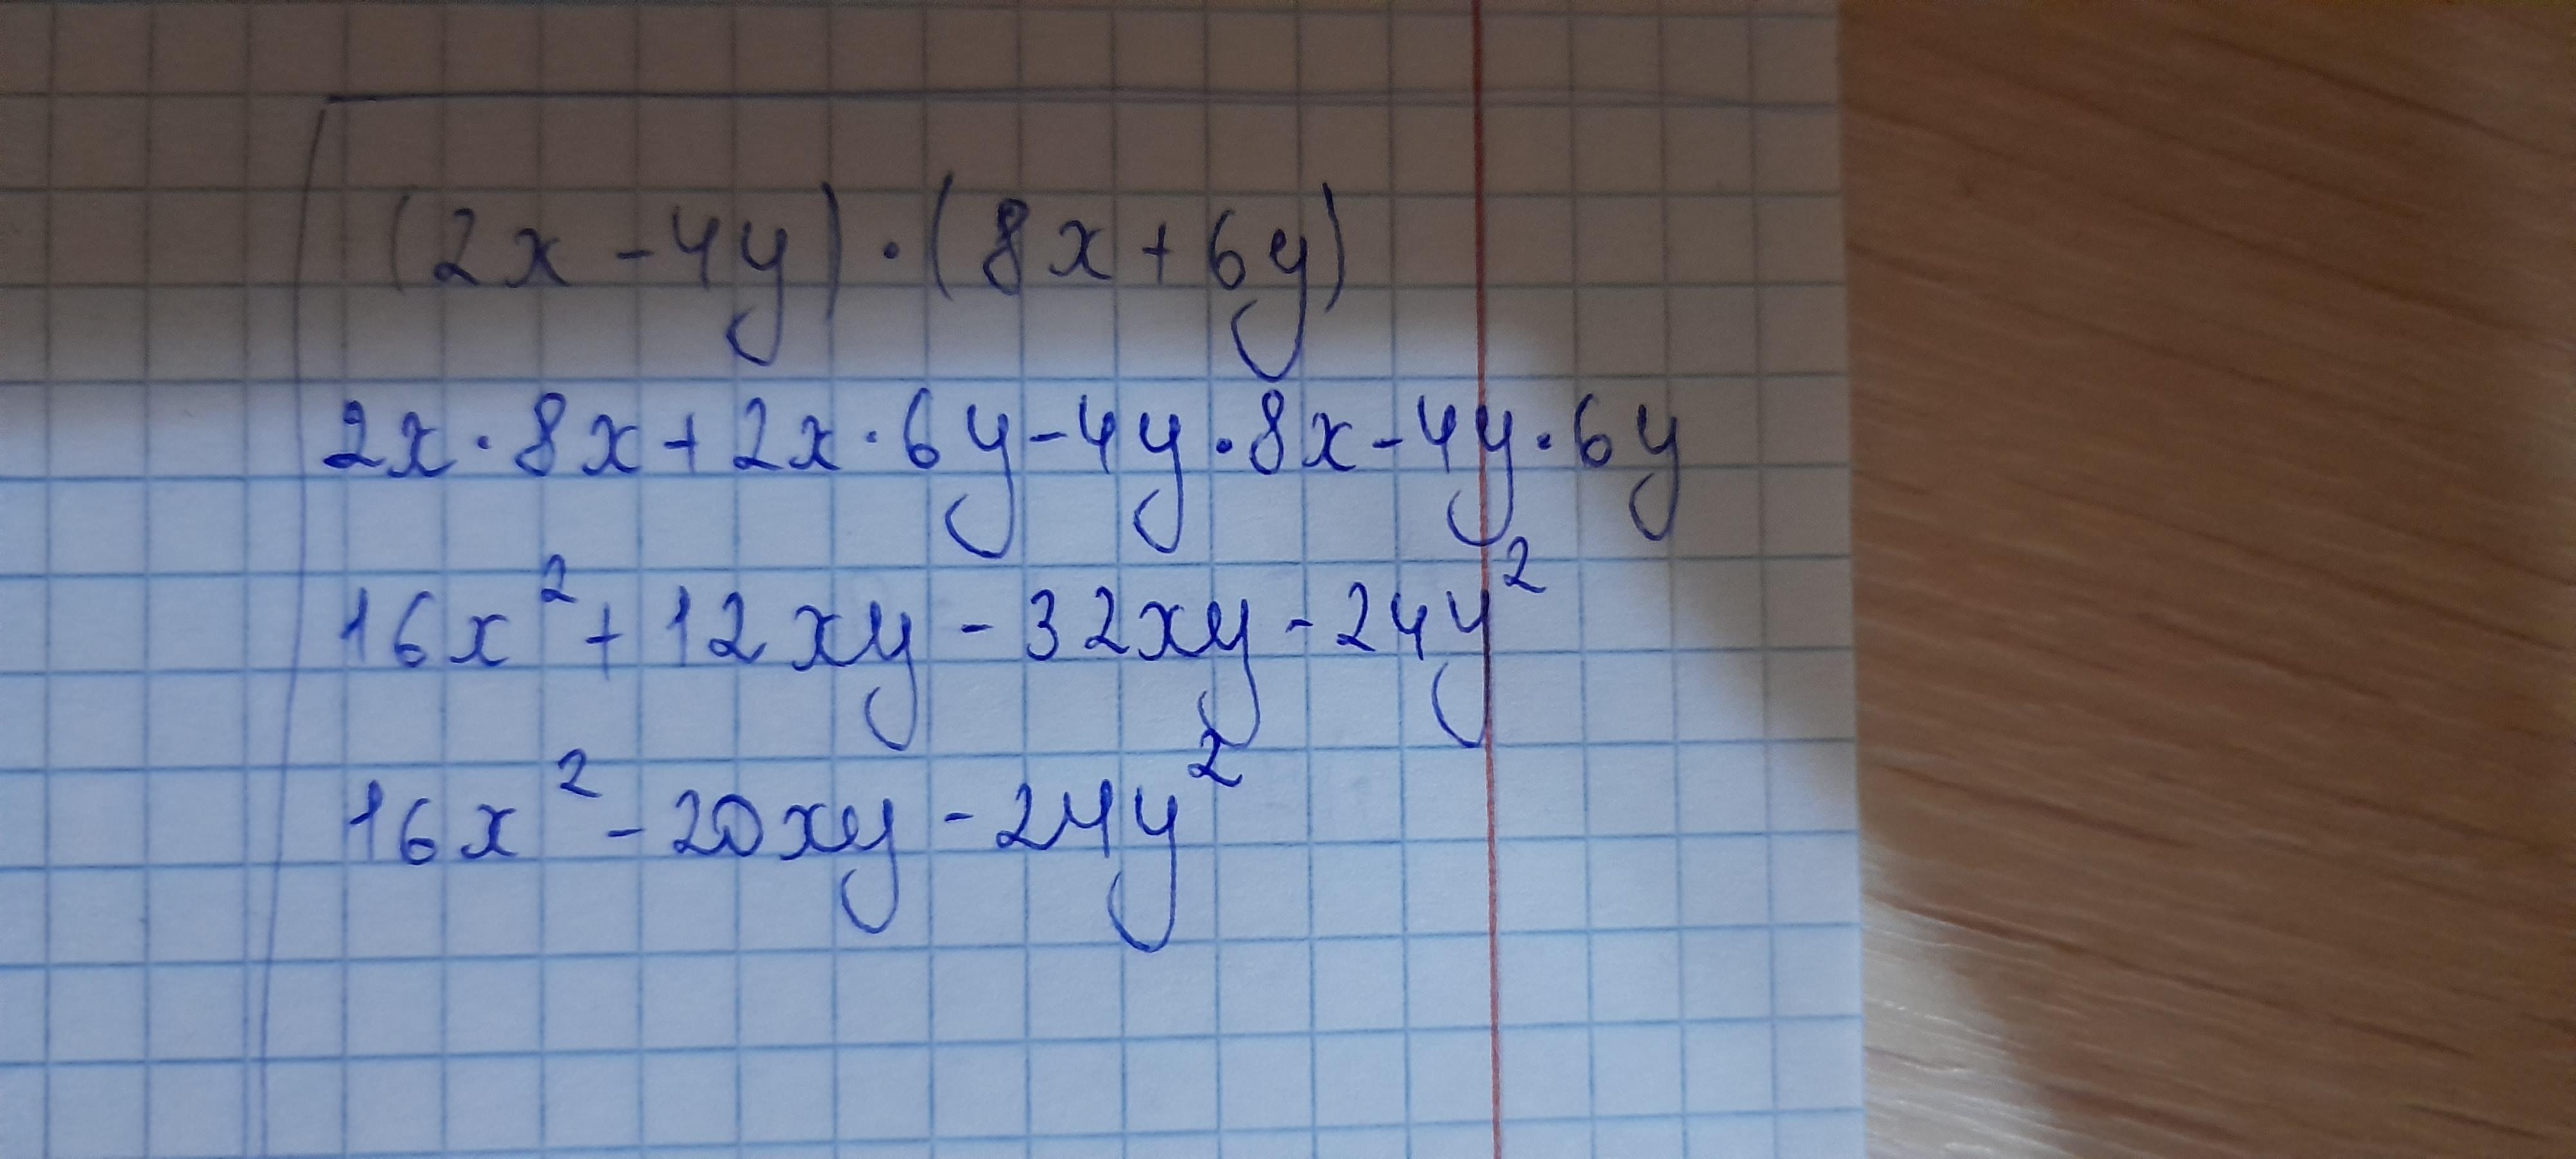 (2x - 4y) · (8x + 6y)
2x · 8x + 2x · 6y - 4y · 8x - 4y · 6y
16x² + 12xy - 32xy - 24y²
16x² - 20xy - 24y²